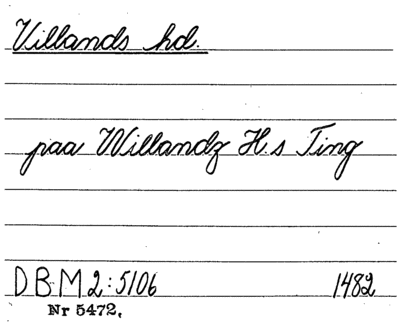 Villands hd.
paa Willandz H.s Ting
DBM 2:5106 1482
Nr 5472,